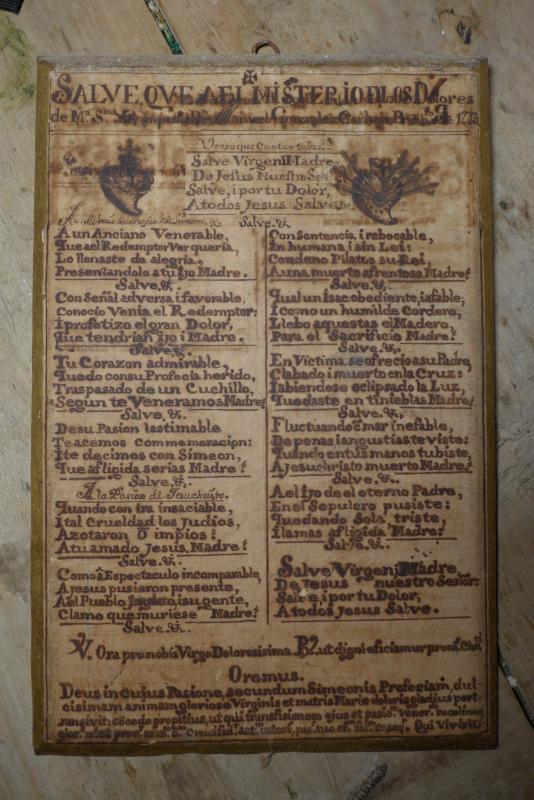 SALVE, QVE AEL MISTERIO DLOS Dolores
de Mª. Smª.
Verso que Cantan todos.
Salve Virgen i Madre
De Jesus Nuestro
Salve, i por tu Dolor,
A todos Jesus Salve
Salve. &.
A un Anciano Venerable,
Que a el Redemptor Ver queria,
Lo llenaste de alegria,
Presentandole a tu Ijo Madre.
Salve. &.
Con Señal adversa i favorable,
Conocio Venia el Redemptor:
I profetizo el gran Dolor,
Que tendrian Ijo i Madre.
Salve &.
Tu Corazon admirable,
Quedo con su Profecia herido,
Traspasado de un Cuchillo,
Segun te Veneramos Madre
Salve. &.
De su Pasion lastimable
Te acemos commemoracion:
Ite decimos con Simeon,
Que afligida serias Madre
Salve. &.
A la Pasion de Jesuchristo.
Quando con ira insaciable,
I tal Crueldad los Judios,
Azotaron ô impios!
A tu amado Jesus Madre
Salve. &.
Como â Espectaculo incomparable,
A Jesus pusieron presente,
A el Pueblo i su gente,
Clamo que muriese Madre
Salve &.
Con Sentencia irebocable,
In humana i sin Lei:
Condeno Pilatus su Rei,
A una muerte afrentosa Madre
Salve. &.
Qual un Isac obediente, iafable,
I como un humilde Cordero,
Llebo aquestas el Madero,
Para el Sacrificio Madre
Salve. &.
En Victima se ofrecio asu Padre,
Clabado i muerto en la Cruz:
Iabiendose eclipsado la Luz,
Quedaste en tinieblas Madre
Salve. &.
Fluctuando ê mar inefable,
De penas i angustias te viste:
Quando entus manos tubiste,
A Jesuchristo muerto Madre
Salve. &.
A el Ijo de el eterno Padre,
En el Sepulcro pusiste:
Quedando Sola triste,
Llamas afligida Madre
Salve. &.
Salve Virgen i Madre,
De Jesus nuestro Señor:
Salve, i por tu Dolor,
A todos Jesus Salve.
V. Ora pro nobis Virgo Dolorosisima. R. ut digni eficiamur prom. Chri
Oremus.
Deus in cuius Pasione, secundum Simeonis Profeciam, dul-
cisimam animam gloriose Virginis et matris Marie doloris gladius pert-
ransivit; côcede propitius, ut qui transfisionem ejus et pasio. venor. recolimus
Qui Vivis &.